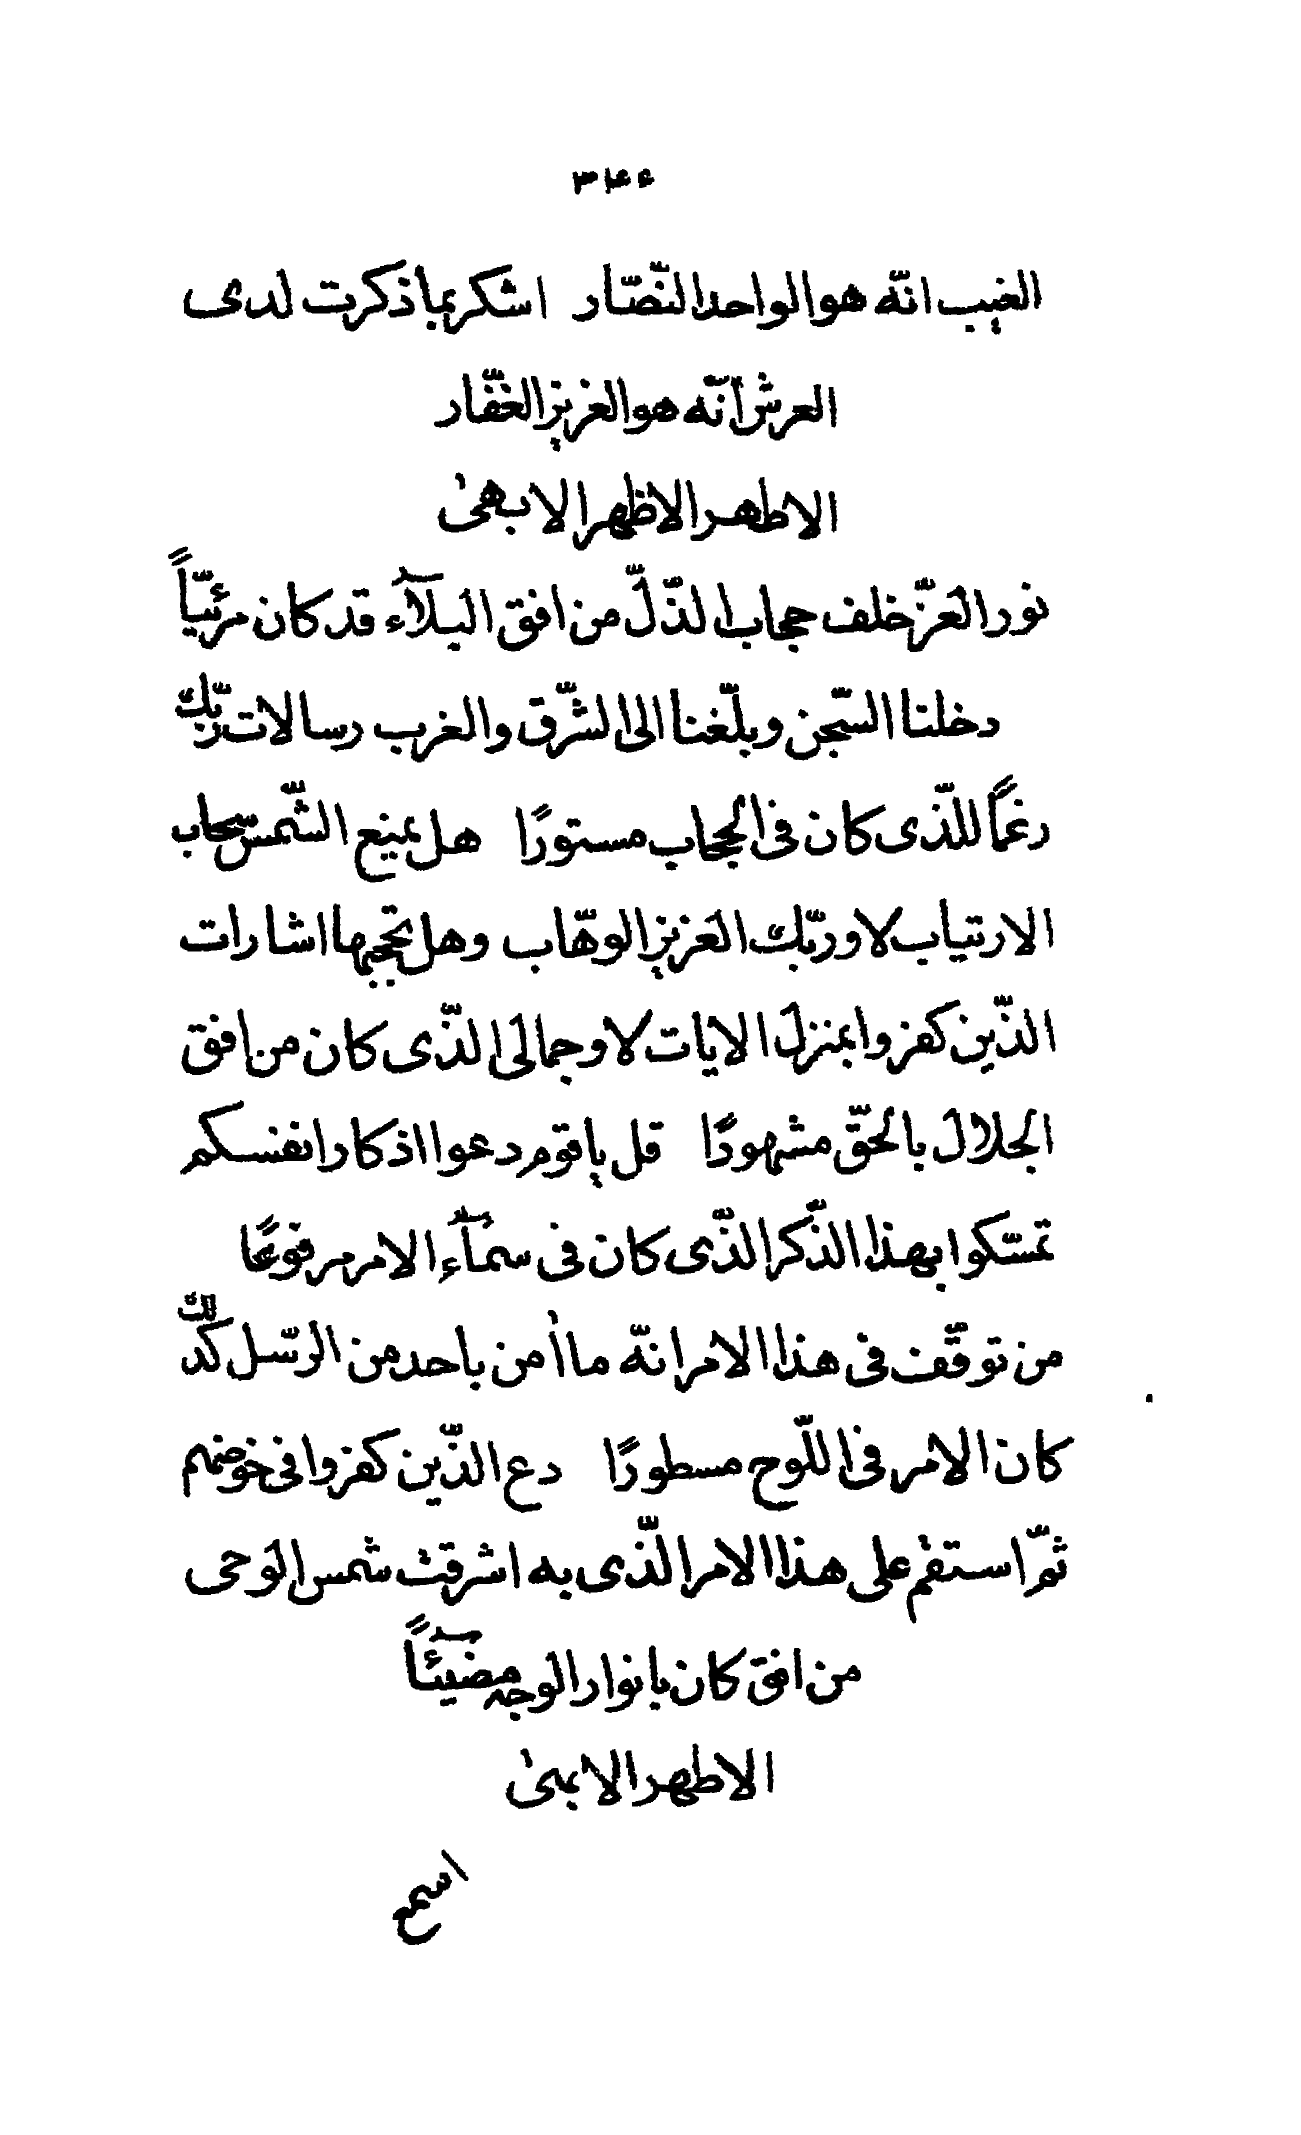 ۳۴۶
الغیب انّه هو الواحد النّصّار اشکر بما ذکرت لدی
العرش انّه هو العزیز الغفّار
الاطهر الاظهر الابهیٰ
نور العزّ خلف حجاب الذّلّ من افق البلآء قد کان مرئیّاً
دخلنا السّجن و بلّغنا الی الشّرق و الغرب رسالات ربّک
رغماً للّذی کان فی الحجاب مستورًا هل یمنع الشّمس سحاب
الارتیاب لا و ربّک العزیز الوهّاب و هل تحجبها اشارات
الذّین کفروا بمنزل الایات لا و جمالی الذّی کان من افق
الجلال بالحقّ مشهودًا قل یا قوم دعوا اذکار انفسکم
تمسّکوا بهذا الذّکر الذّی کان فی سمآءِ الامر مرفوعًا
من توقّف فی هذا الامر انّه ما اٰمن باحد من الرّسل کذلک
کان الامر فی اللّوح مسطورًا دع الذّین کفروا فی خوضهم
ثمّ استقم علی هذا الامر الذّی به اشرقت شمس الوحی
من افق کان بانوار الوجه مضیئاً
الاطهر الابهیٰ
اسمع